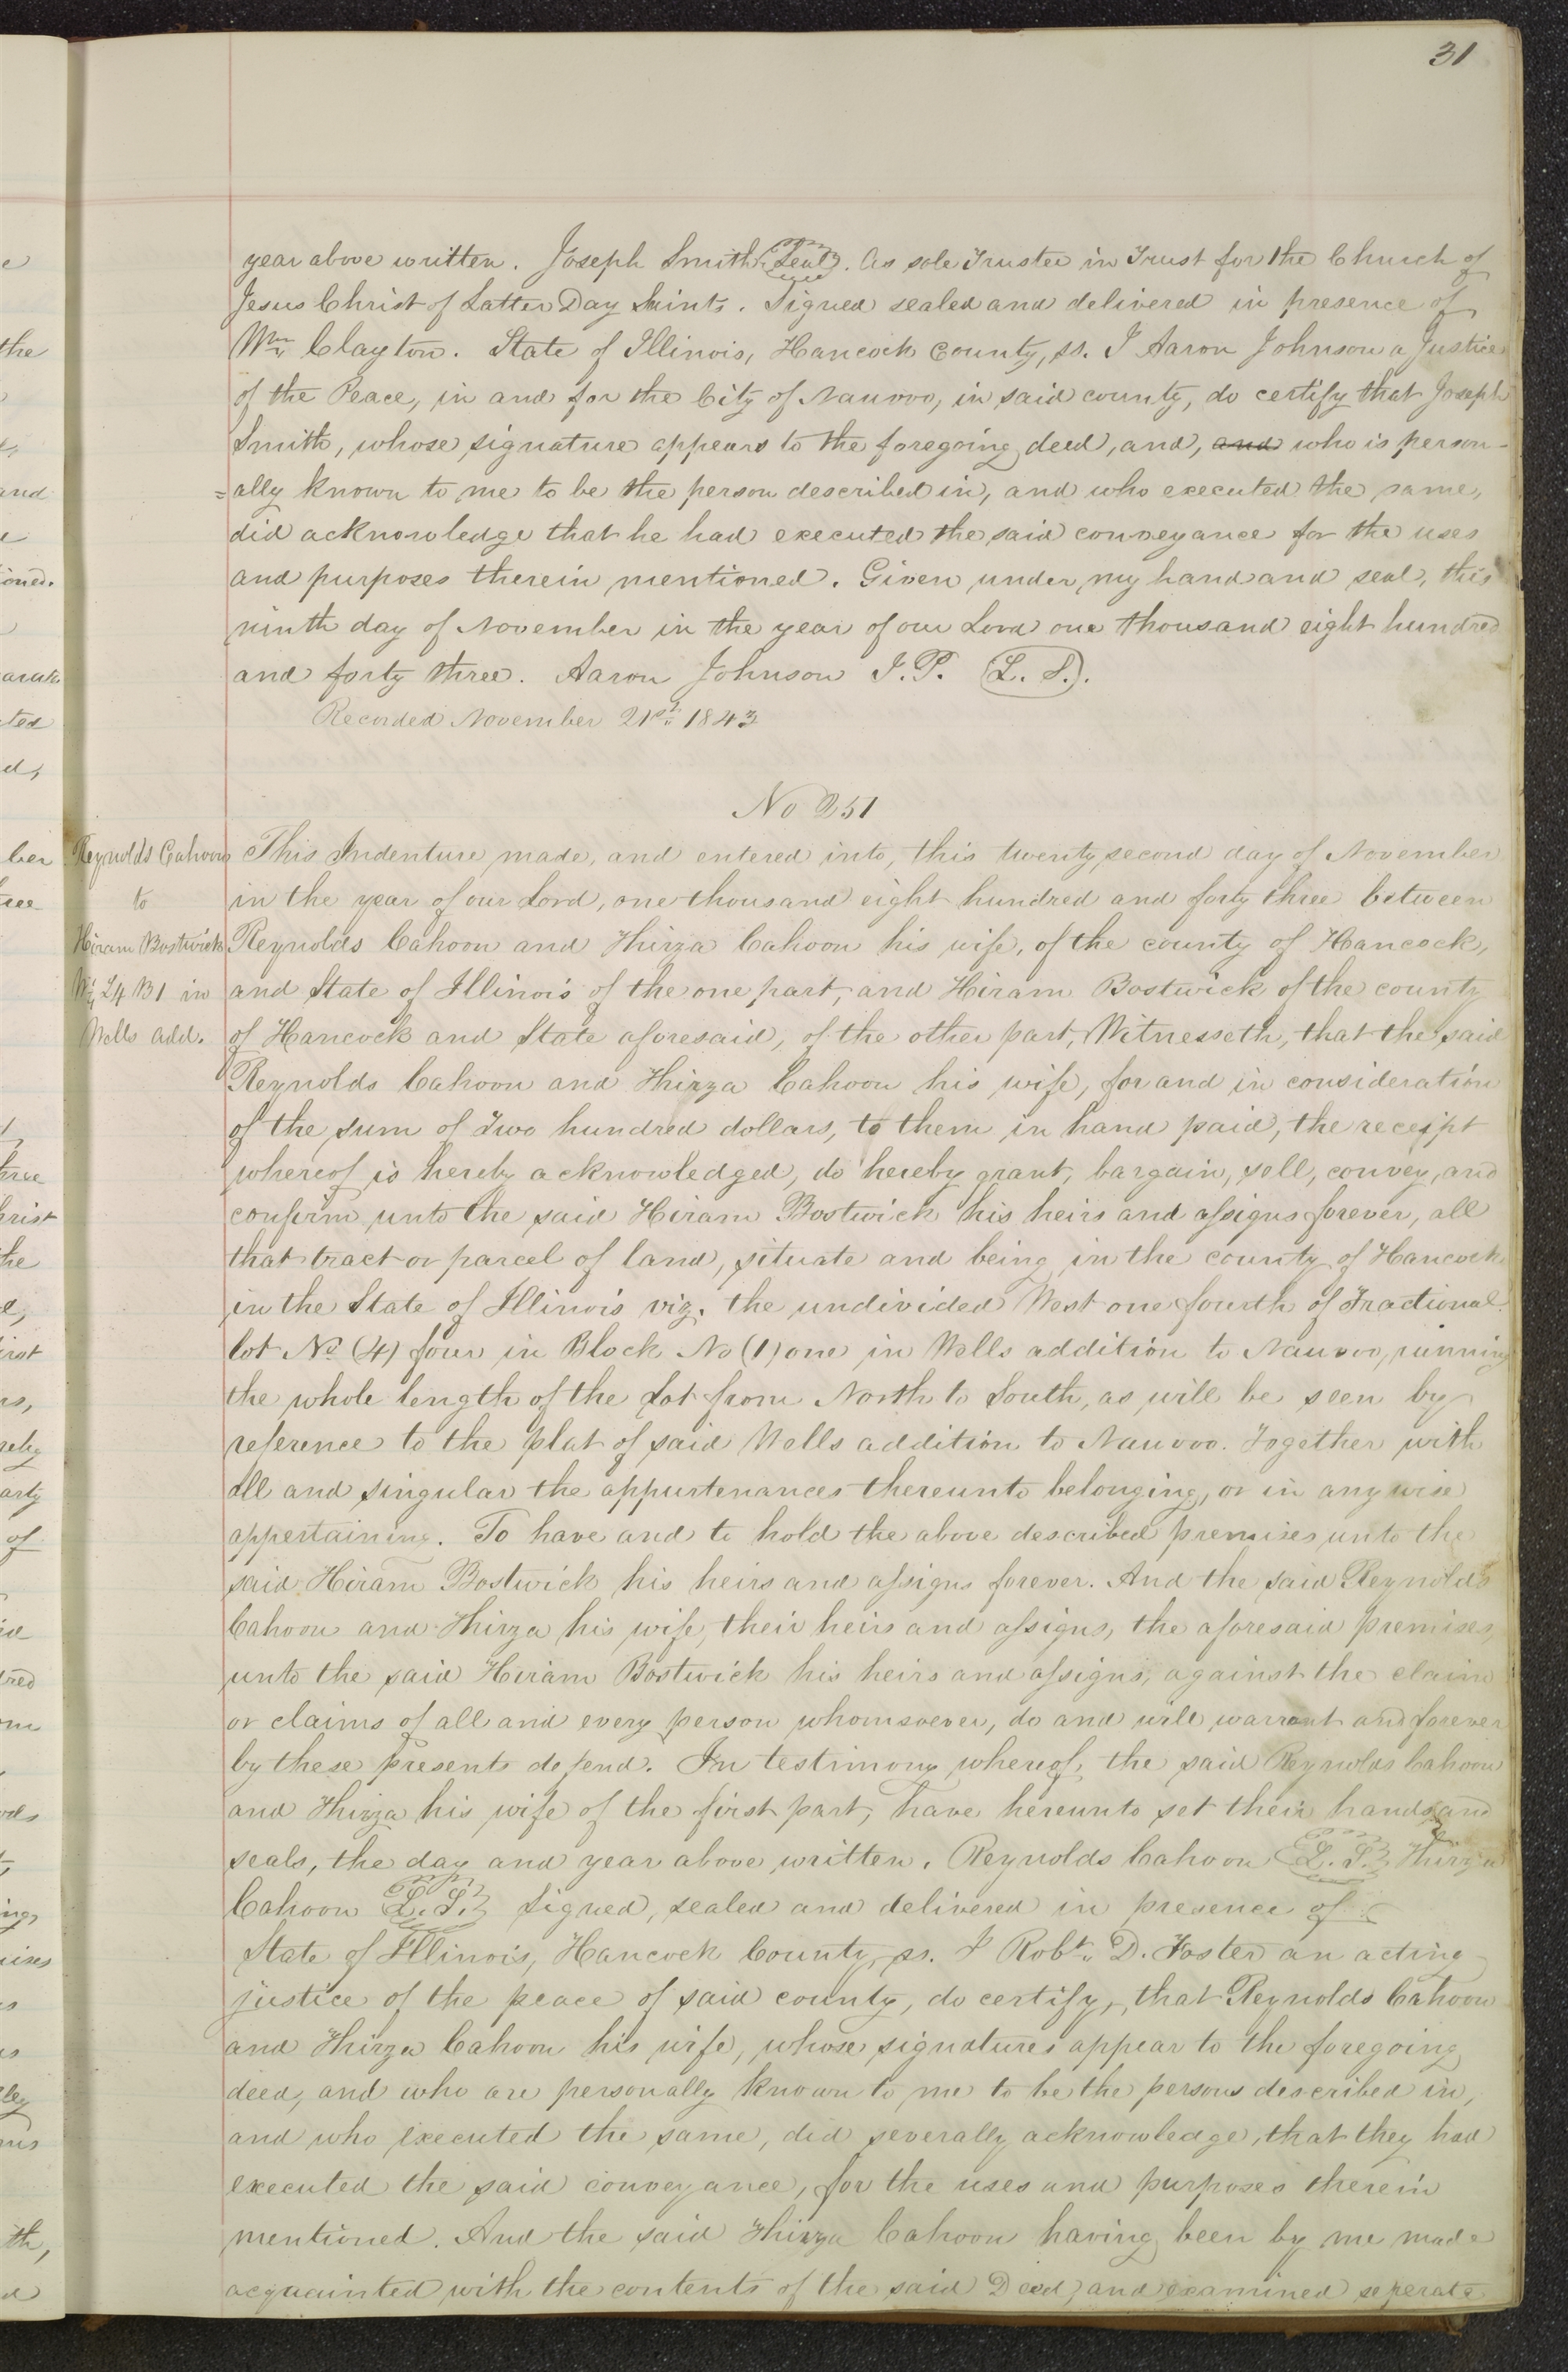 31
year above written. Joseph Smith (Seal). As sole Trustee in Trust for the Church of
Jesus Christ of Latter Day Saints. Signed sealed and delivered in presence of
Wm Clayton. State of Illinois, Hancock County, ss. I Aaron Johnson a Justice
of the Peace, in and for the City of Nauvoo, in said county, do certify that Joseph
Smith, whose signature appears to the foregoing deed, and, and who is person-
=ally known to me to be the person described in, and who executed the same,
did acknowledge that he had executed the said conveyance for the uses
and purposes therein mentioned. Given under my hand and seal, this
ninth day of November in the year of our Lord one thousand eight hundred
and forty three. Aaron Johnson J.P. (L. S.).
Recorded November 21st 1843
No 251
Reynolds Cahoon
to
Hiram Bostwick
W¼ L4 B1 in
Wells add.
This Indenture, made, and entered into, this twenty second day of November
in the year of our Lord, one thousand eight hundred and forty three between
Reynolds Cahoon and Thirza Cahoon his wife, of the county of Hancock,
and State of Illinois of the one part, and Hiram Bostwick of the county
of Hancock and State aforesaid, of the other part, Witnesseth, that the said
Reynolds Cahoon and Thirza Cahoon his wife, for and in consideration
of the sum of Two hundred dollars, to them in hand paid, the receipt
whereof is hereby acknowledged, do hereby grant, bargain, sell, convey, and
confirm unto the said Hiram Bostwick his heirs and assigns forever, all
that tract or parcel of land, situate and being in the county of Hancock
in the State of Illinois viz. the undivided West one fourth of Fractional
lot No (4) four in Block No (1) one in Wells addition to Nauvoo, running
the whole length of the Lot from North to South, as will be seen by
reference to the plat of said Wells addition to Nauvoo. Together with
all and singular the appurtenances thereunto belonging, or in any wise
appertaining. To have and to hold the above described premises unto the
said Hiram Bostwick his heirs and assigns forever. And the said Reynolds
Cahoon and Thirza his wife, their heirs and assigns, the aforesaid premises,
unto the said Hiram Bostwick his heirs and assigns, against the claim
or claims of all and every person whomsoever, do and will warrant and forever
by these presents defend. In testimony whereof, the said Reynolds Cahoon
and Thirza his wife of the first part, have hereunto set their hands and
seals, the day and year above written. Reynolds Cahoon L. S. Thirza
Cahoon L. S. Signed, sealed and delivered in presence of
State of Illinois, Hancock County, ss. I Robt. D. Foster an acting
justice of the peace of said county, do certify, that Reynolds Cahoon
and Thirza Cahoon his wife, whose signatures appear to the foregoing
deed, and who are personally known to me to be the persons described in,
and who executed the same, did severally acknowledge, that they had
executed the said conveyance, for the uses and purposes therein
mentioned. And the said Thirza Cahoon having been by me made
acquainted with the contents of the said Deed, and examined seperate